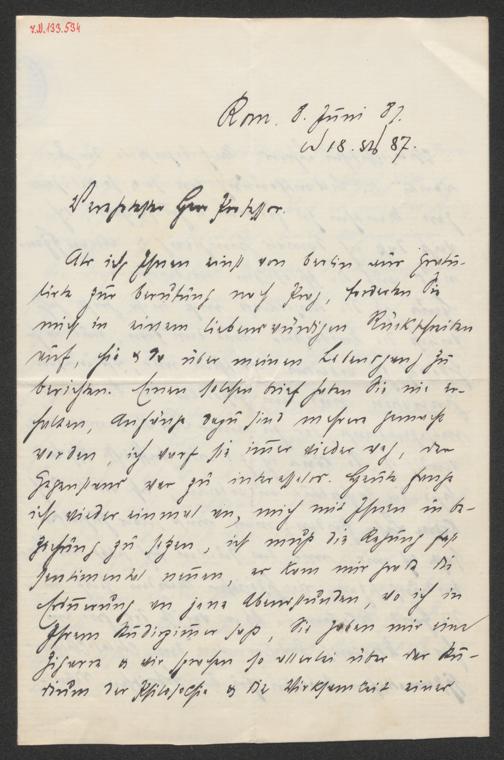 I.N. 133.534
Rom. 8. Juni 87.
18. 87.
Verehrtester Herr Professor.
Als ich Ihnen einst von Berlin aus gratu-
lirte zur Berufung nach Prag, forderten Sie
mich in einem liebenswürdigen Rückschreiben
auf, hie & da über meinen Lebensgang zu
berichten. Einen solchen Brief haben Sie nie er-
halten, Anfänge dazu sind mehrere gemacht
worden, ich warf sie immer wieder weg, der
Gegenstand war zu interesselos. Heute fange
ich wieder einmal an, mich mit Ihnen in Be-
ziehung zu setzen, ich muß die Regung fast
sentimental nennen, es kam mir grad die
Erinnerung an jene Abendstunden, wo ich in
Ihrem Studirzimmer saß, Sie gaben mir eine
Zigarre & wir sprachen so allerlei über das Stu-
dium der Philosophie & die Wirksamkeit eines